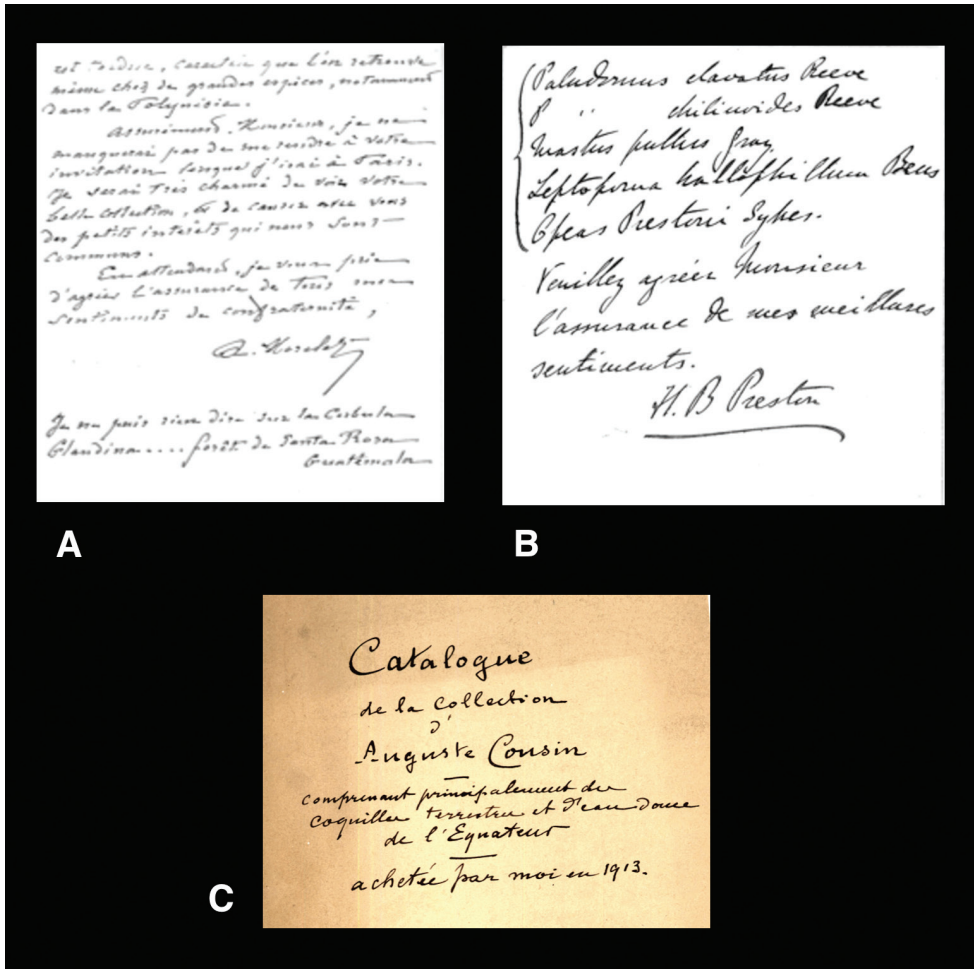 est tordue, caractère que l'on retrouve
même chez de grandes espèces, notamment
dans la Polynésie.
Assurément, Monsieur, je ne
manquerai pas de me rendre à votre
invitation lorsque j'irai à Paris.
Je serai très charmé de voir votre
belle collection, & de causer avec vous
des petits intérêts qui nous sont
communs.
En attendant, je vous prie
d'agréer l'assurance de tous mes
sentiments de confraternité,
A. Morelet
Je ne puis rien dire sur la Corbula
Glandina.... forêt de Santa Rosa
Guatemala
A
Paludomus clavatus Reeve
P " chilinoides Reeve
Mastus pullus Gray
Leptopoma halophillum Bens
Opeas Prestoni Sykes.
Veuillez agréer Monsieur
l'assurance de mes meillures
sentiments.
H. B Preston
B
Catalogue
de la collection
d'
Auguste Cousin
comprenant principalement des
coquilles terrestres et d'eau douce
de l'Equateur
achetée par moi en 1913.
C